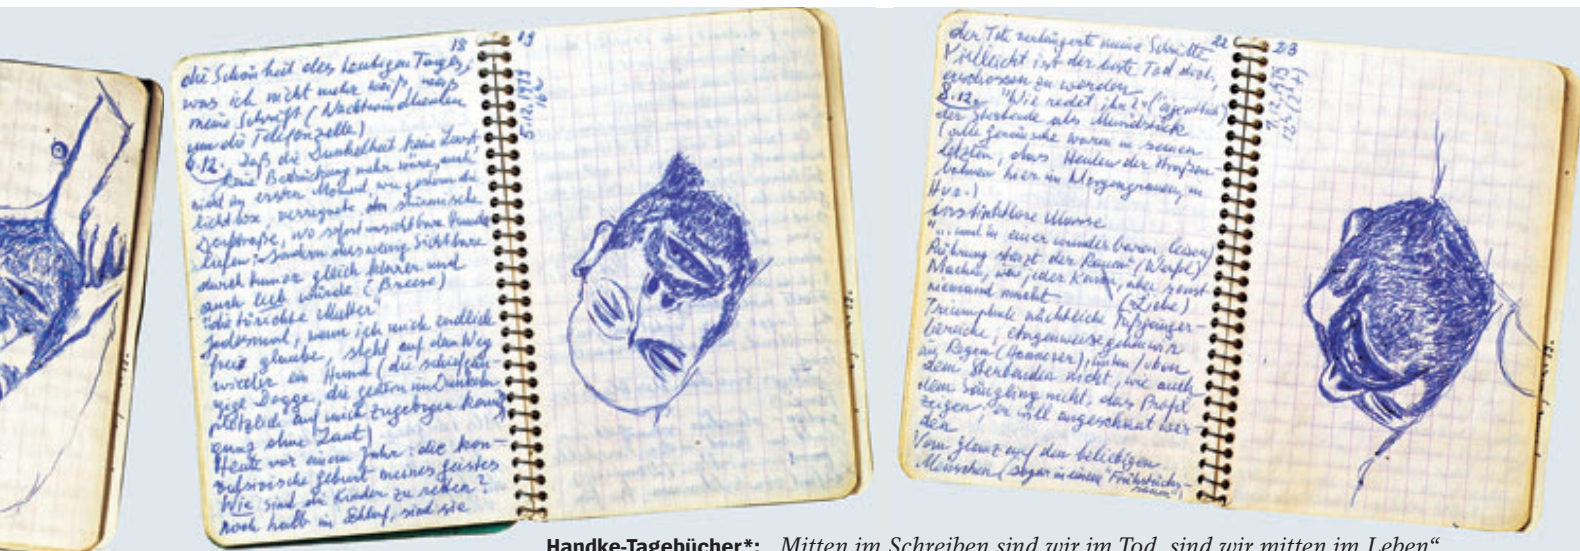 18
die Schönheit des heutigen Tages,
was ich nicht mehr weiß, weiß
meine Schrift (Nachtwindheulen
um die Telefonzelle)
6.12. Daß die Dunkelheit keine Lust,
keine Bedrückung mehr wäre, auch
nicht im ersten Moment, wie gestern die
lichtlose, verregnete, stürmische
Dorfstraße, wo sofort unsichtbare Hunde
liefen: Sondern das wenig Sichtbare
durch Humor gleich klarer und
auch lieb würde (Breese)
"die törichte Mutter"
Jedesmal, wenn ich mich endlich
frei glaube, steht auf dem Weg
wieder ein Hund (die
Dogge, die gestern im Dunkeln
plötzlich auf mich zugebogen kam,
ganz ohne Laut)
Heute vor einem Jahr: die kon-
vulsivische Geburt meines Geistes
Wie sind die Kinder zu retten?
Noch halb im Schlaf, sind sie
19
5.12.1977
16h
22
der Tote verlängerte meine Schritte
Vielleicht ist der beste Tod doch,
erschossen zu werden
8.12. "Wie redet ihr?" (eigentlich)
der Sterbende als Mundstück
(alle Geräusche waren in seinen
letzten, das Heulen der Straßen-
bahnen hier im Morgengrauen, in
unsichtbare Masse
"...und in einer wunderbaren leisen
Rührung stürzt der Raum" (Werfel)
Machen, was jeder kann, aber sonst
niemand macht (Liebe)
Triumphale nächtliche Fußgänger-
bereiche,
im Regen (Hannover),
dem Sterbenden nicht, wie auch
dem Säugling nicht, das Profil
zeigen: er will angeschaut wer-
den
Vom Glanz auf den beliebigen
Menschen (sogar in einem "Frühstücks-
raum")
23
7.12.1977
12h
Handke-Tagebücher*: „Mitten im Schreiben sind wir im Tod, sind wir mitten im Leben“